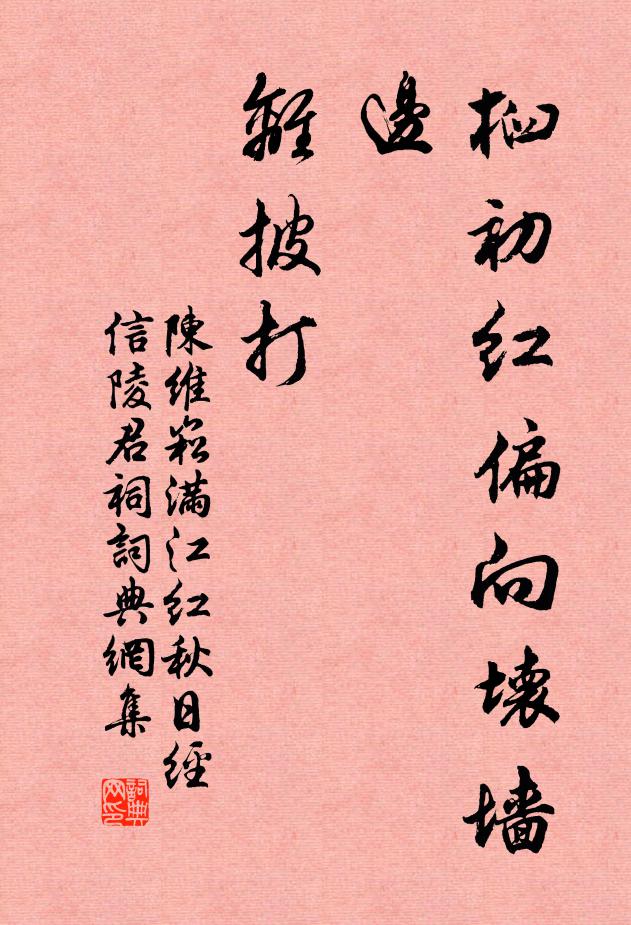 桕初紅偏向壞墻
邊
離披打
陳維崧滿江紅秋日經
信陵君祠詞典網集
詞典
网印